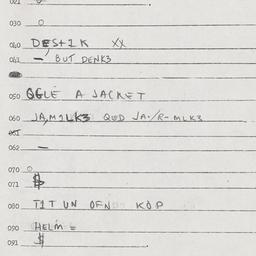 021
030 O
040 DES+1K XX
041 — BUT DENK3
050 OGLE A JACKET
060 JA,M1LK3 QUD JA-/R-MLK3
061
062 —
070 O
071 $
080 T1T UN OFN KOP
090 HELM =
091 $